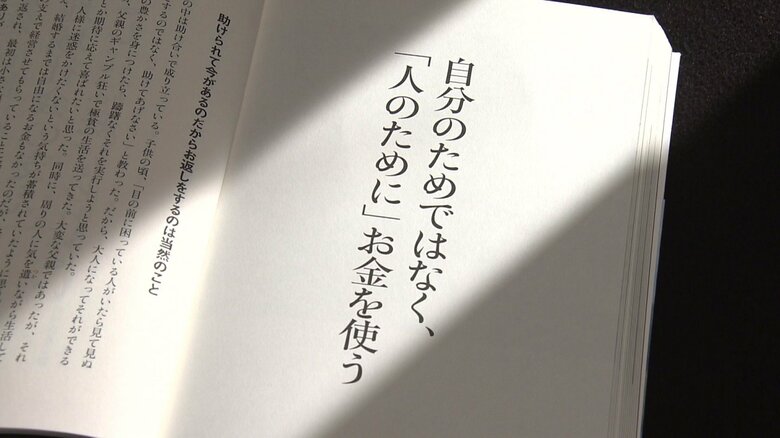 自分のためではなく、
「人のために」お金を使う
助けられて今があるのだからお返しをするのは当然のこと
の中は助け合いで成り立っている。子供の頃、「目の前に困っている人がいたら見て見ぬ
するのではなく、助けてあげなさい」と教わった。だから、大人になってそれができる
の豊かさを身につけたら、躊躇なくそれを実行しようと思っていた。
父親のギャンブル狂いで極貧の生活を送ってきた。大変な父親ではあったが、それ
とか期待に応えて喜ばれたいと思った。同時に、周りの人に気を遣いながら生活して
人様に迷惑をかけたくないという気持ちが蓄積されていたように思
結婚するまでは自由になるお金もなかったのだが、さ
支えで経営させてもらっていること
返され、最初は小さな